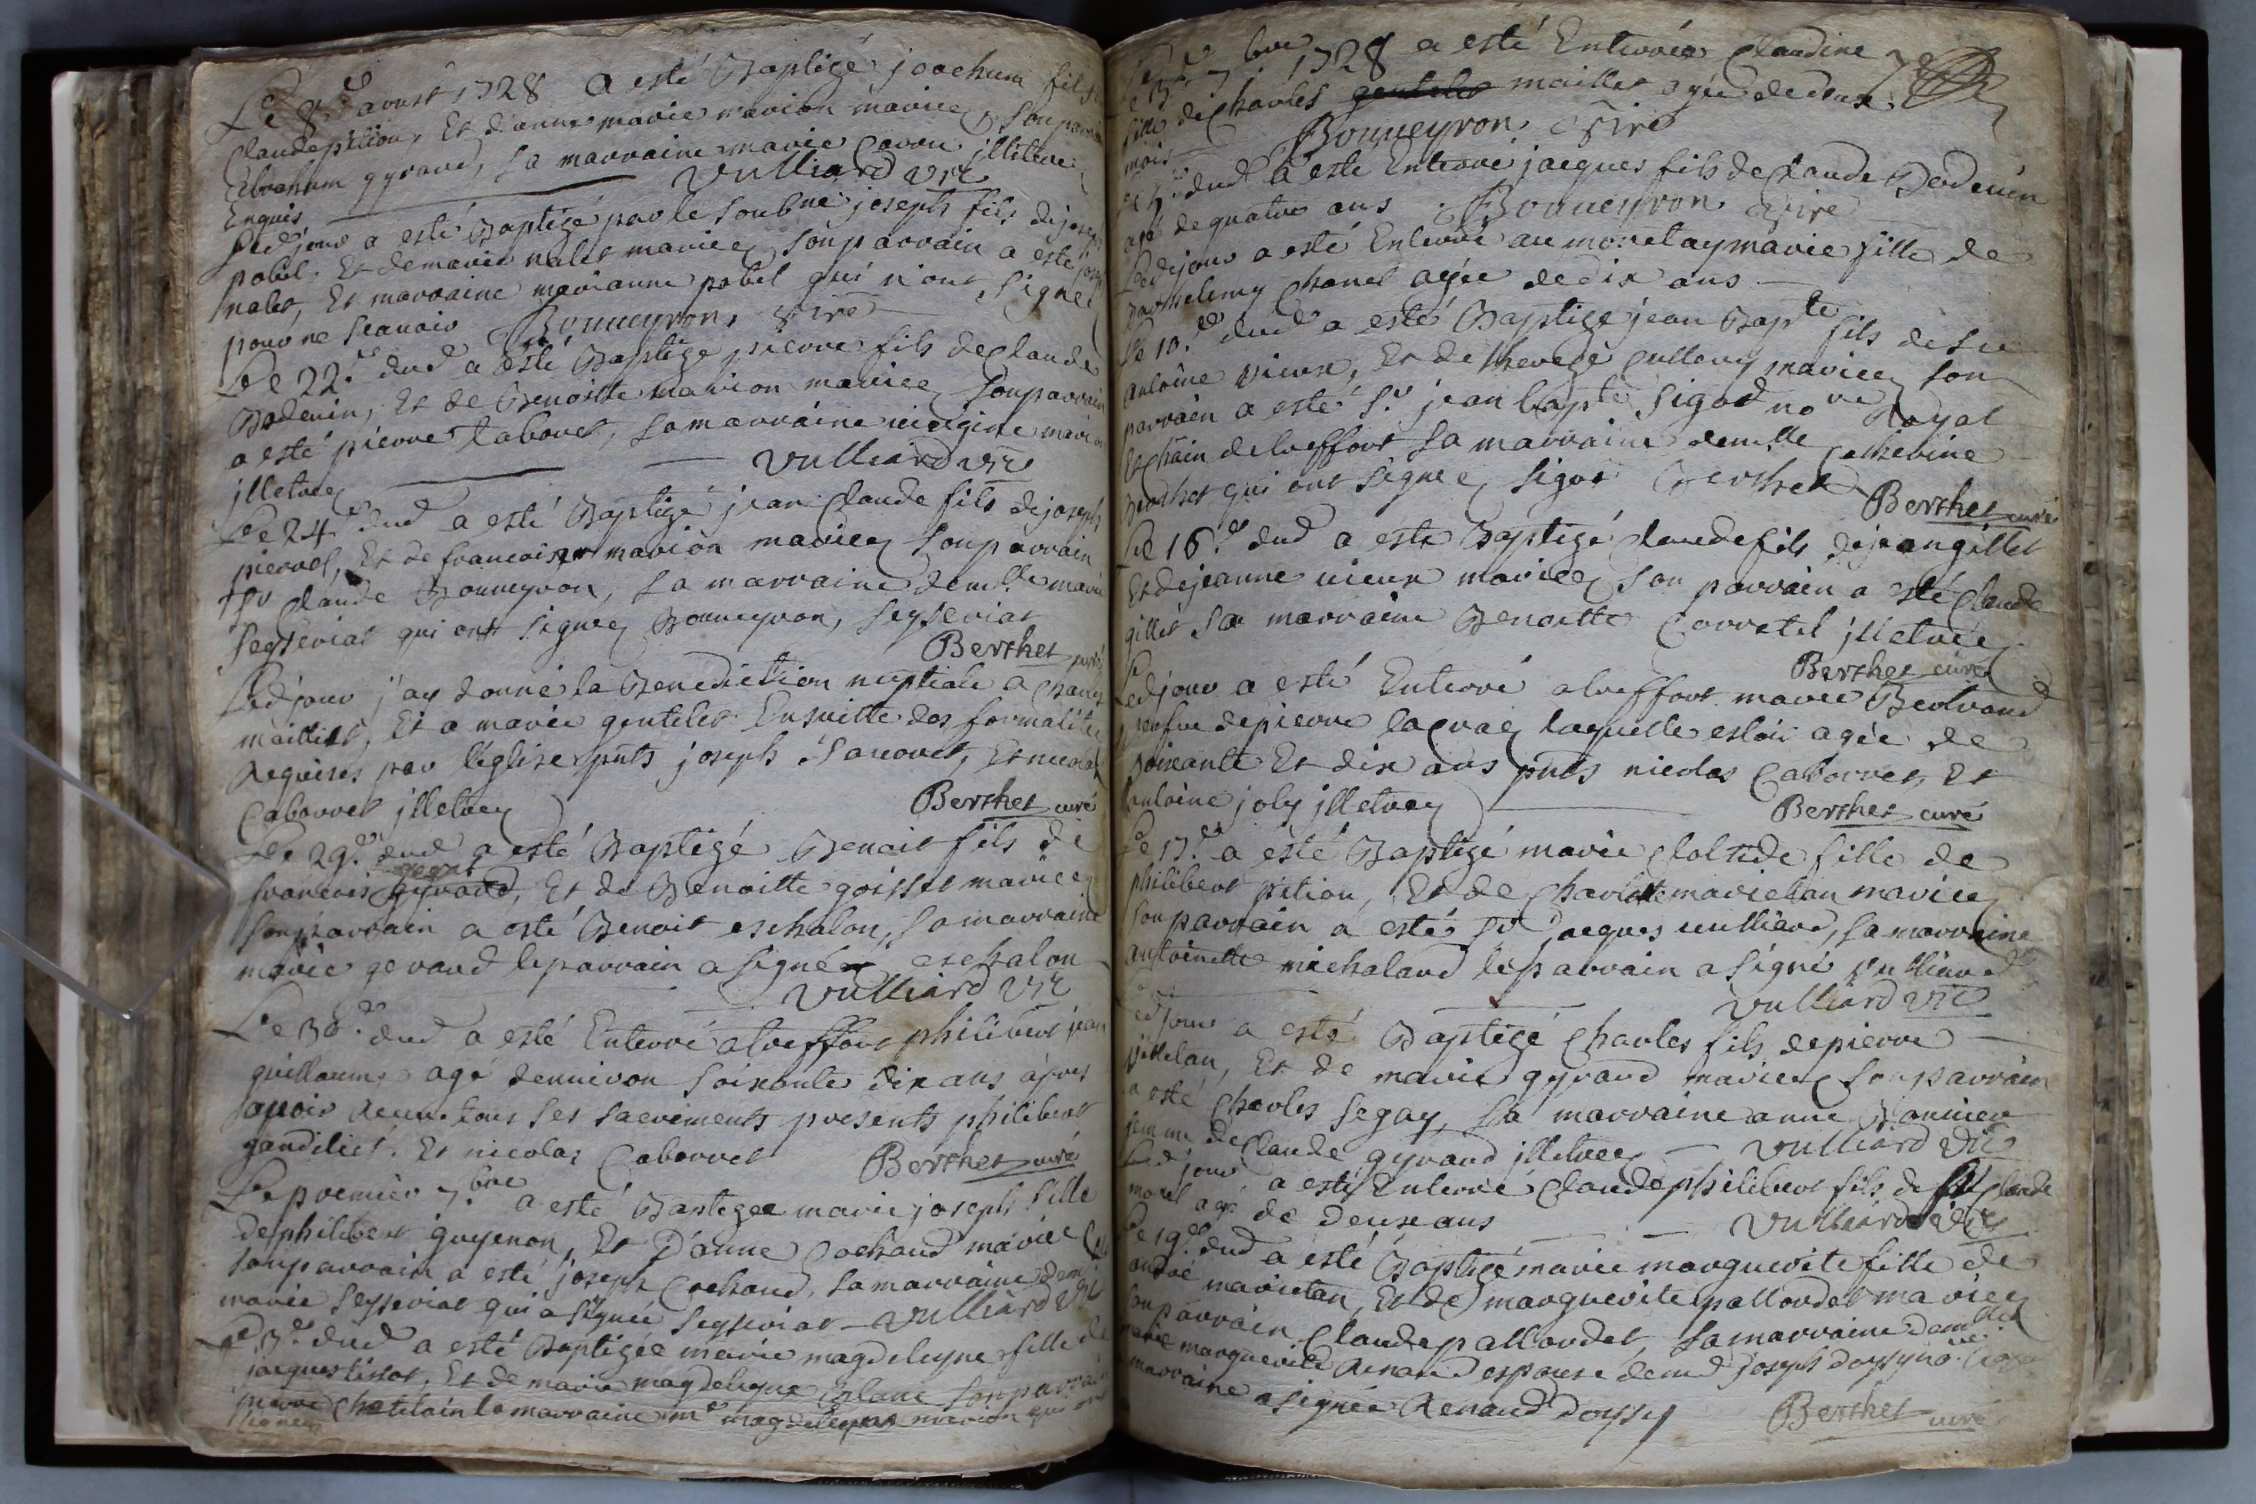 Le 8.e aoust 1728 a esté Baptizé joachum fils de
Claude pition, Et d'anne marie marion mariez son parrain
abraham gyraud, sa marraine marie Carru illitere
Enquis Vulliard Vic
Led jour a esté Baptizé par le soubné joseph fils de joseph
pobel, Et de marie nalet mariez son parrain a esté joseph
nalet, Et marraine marianne pobel qui n'ont signé
pour ne scavoir Bonneyron, vire
Le 22.e dud a esté Baptizé pierre fils de Claude
Bodenin, Et de Benoitte marion mariez son parrain
a esté pierre Caboret, sa marraine marion
jlletrez Vulliard Vic
Le 24.e dud a esté Baptizé jean Claude fils de joseph
pierrel, Et de francoise marion mariez son parrain
Sr Claude Bonneyron, sa marraine demlle marie
seysseriat qui ont signez Bonneyron, seysseriat
Berthet curé
Led jour j'ay donné la Benediction nuptiale a Charles
maillet, Et a marie gentelet Ensuitte des formalites
Requises par l'église pnts joseph Sarcoret, Et nicolas
Caborret jlletrez Berthet curé
Le 29.e dud a esté Baptizé Benoit fils de
francois gyraud, Et de Benoitte goisset mariez
son parrain a esté Benoit eschalon, sa marraine
marie geraud le parrain a signé eschalon
Vulliard Vic
Le 30.e dud a esté Enterré a treffort philibert jean
guillaume agé d'environ soixante dix ans apres
avoir receu tous ses sacrements presents philibert
gandiliet Et nicolas Caborret Berthet curé
Le premier 7.bre a esté Baptizee marie joseph fille
de philibert guyenon, Et d'anne Cochaud mariez
son parrain a esté joseph Cochaud, sa marraine demlle
marie seysseriat qui a signée seysseriat Vulliard Vic
Le 3.e dud a esté Baptizée marie magdeleyne fille de
jacques tissot, Et de marie magdeleyne Blanc son parrain
pierre Chatelain la marraine me magdeleyne marion qui ont
signez
Le 3.e 7bre 1728 a esté Enterrée Claudine
fille de Charles gentelet maillet agée de deux
mois Bonneyron vire
Le 5.e dud a esté Enterré jacques fils de Claude Bodenin
agé de quatre ans Bonneyron vire
Led jour a esté Enterré au monetay marie fille de
Barthelemy Chanel agée de dix ans
Le 10.e dud a esté Baptizé jean Bapte fils de Sr
antoine vieux, Et de therese Cullery mariez son
parrain a esté Sr jean bapte sigod nore Royal
Et Chain de treffort sa marraine demlle Catherine
Berthet qui ont signez, sigod Berthet
Berthet curé
Le 16.e dud a esté Baptizé Claude fils de jean gillet
Et de jeanne vieux mariez son parrain a esté Claude
gillet sa marraine Benoitte Corretel jlletrée
Berthet curé
Led jour a esté Enterré a treffort marie Bertrand
veufve de pierre lacraz laquelle estoit agée de
soixante Et dix ans pnts nicolas Caborret, Et
antoine joly jlletrez Berthet curé
Le 17.e a esté Baptizé marie Clotide fille de
philibert pition, Et de Charlotte marietan mariez
son parrain a esté Sr jacques vulliard, sa marraine
antoinette michaland le parrain a signé Vulliard
Vulliard Vic
Led jour a esté Baptizé Charles fils de pierre
pittelan, Et de marie gyraud mariez son parrain
a esté Charles segay, sa marraine anne
femme de Claude gyraud jlletrez Vulliard Vic
Led jour a esté Enterré Claude philibert fils de Sr Claude
morel agé de deux ans Vulliard Vic
Le 19.e dud a esté Baptizé marie marguerite fille de
andré marietan, Et de marguerite pallordet mariez
son parrain Claude pallordet, sa marraine demlle
marie marguerite Renaud espouse de md joseph doysy nore
marraine a signée Renaud doysy
Berthet curé